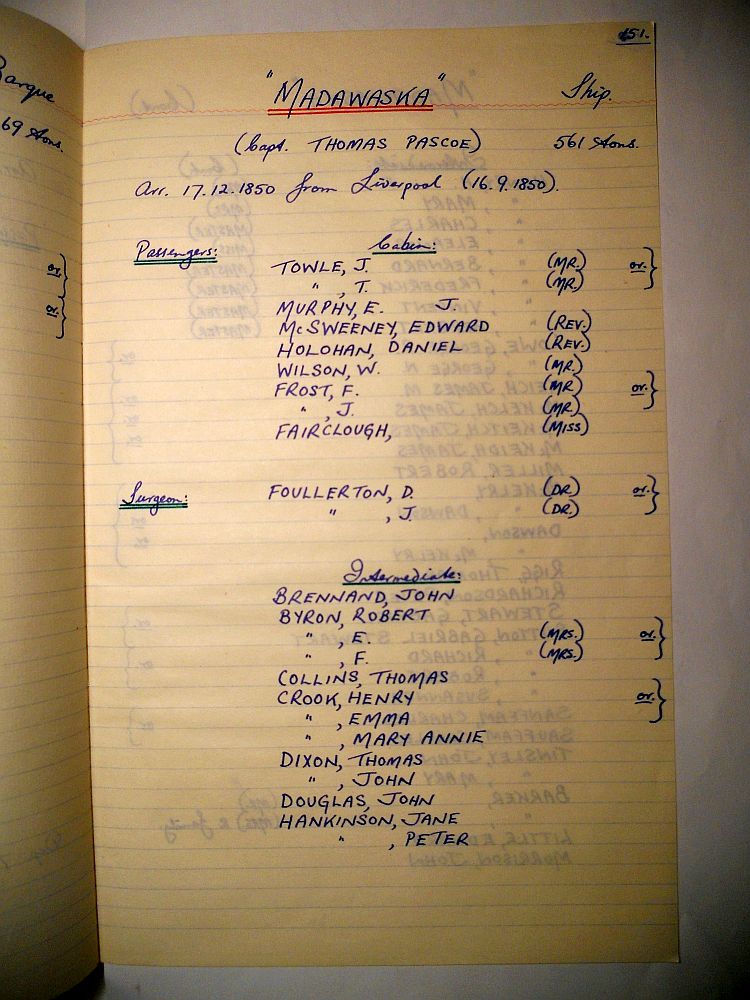 151.
"MADAWASKA" Ship.
(Capt. THOMAS PASCOE) 561 tons.
Arr. 17.12.1850 from Liverpool (16.9.1850).
Passengers: Cabin:
TOWLE, J. (MR.) or. }
" , T. (MR.)
MURPHY, E. J.
McSWEENEY, EDWARD (REV.)
HOLOHAN, DANIEL (REV.)
WILSON, W. (MR.)
FROST, F. (MR.) or. }
" , J. (MR.)
FAIRCLOUGH, (MISS)
Surgeon: FOULLERTON, D. (DR.) or. }
" , J. (DR.)
Intermediate:
BRENNAND, JOHN
BYRON, ROBERT
" , E. (MRS.) or. }
" , F. (MRS.)
COLLINS, THOMAS
CROOK, HENRY or. }
" , EMMA
" , MARY ANNIE
DIXON, THOMAS
" , JOHN
DOUGLAS, JOHN
HANKINSON, JANE
" , PETER
Barque
69 tons.
or. }
or. }